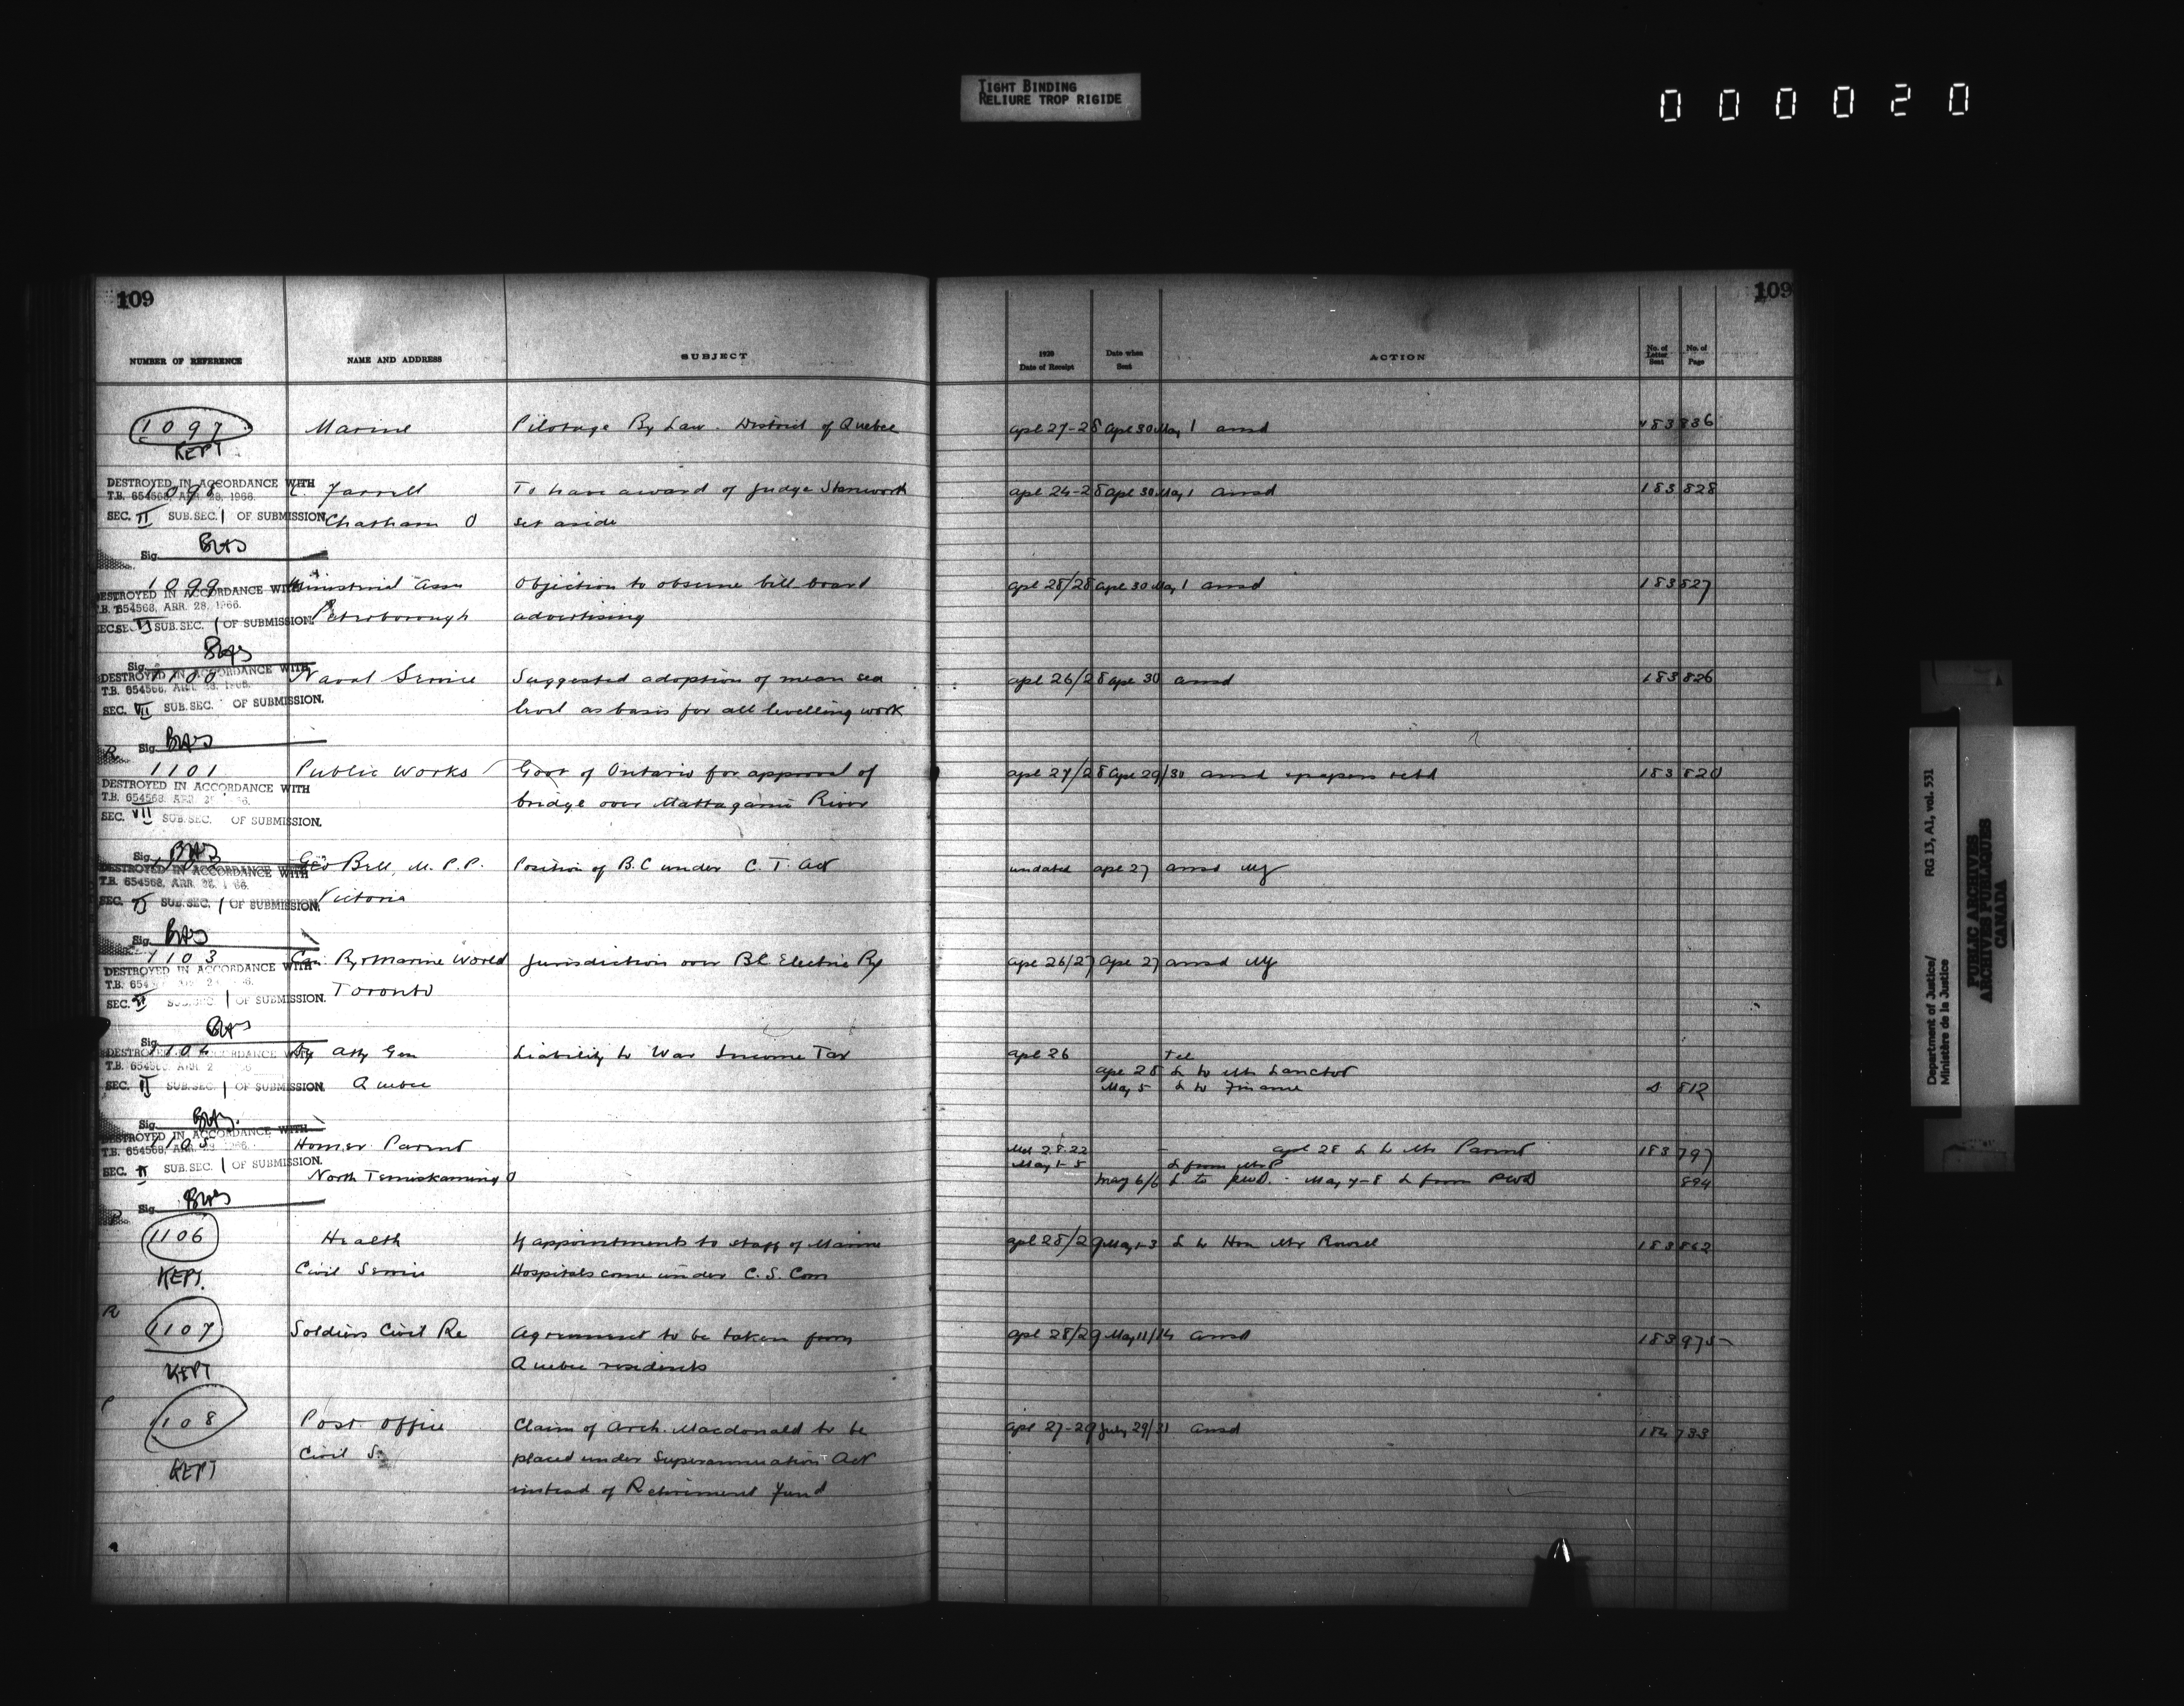 TIGHT BINDING
RELIURE TROP RIGIDE
000020
109
109
NUMBER OF REFERENCE NAME AND ADDRESS SUBJECT 1920 Date of Receipt Date when Sent ACTION No. of Letter Sent No. of Page
1097 Marine Pilotage By Law. District of Quebec Apl 27-28 Apl 30 May 1 ansd 183 836
KEPT
DESTROYED IN ACCORDANCE WITH
T.B. 654568, APR. 28, 1966.
1098 Farrell To have award of Judge Stanworth Apl 24-28 Apl 30 May 1 ansd 183 828
SEC. II SUB.SEC. 1 OF SUBMISSION.
Chatham O set aside
Sig.
1099 Ministerial Assn Objection to obscene bill board Apl 28/28 Apl 30 May 1 ansd 183 827
DESTROYED IN ACCORDANCE WITH
T.B. 654568, APR. 28, 1966.
SEC. VI SUB.SEC. 1 OF SUBMISSION.
Peterborough advertising
Sig.
1100 Naval Service Suggested adoption of mean sea Apl 26/28 Apl 30 ansd 183 826
DESTROYED IN ACCORDANCE WITH
T.B. 654568, APR. 28, 1966.
SEC. VII SUB.SEC. OF SUBMISSION.
level as basis for all levelling work
Sig.
R
1101 Public Works Govt of Ontario for approval of Apl 27/28 Apl 29/30 ansd & papers retd 183 820
DESTROYED IN ACCORDANCE WITH
T.B. 654568
bridge over Mattagami River
SEC. VII SUB.SEC. OF SUBMISSION.
Sig.
Geo Bell, M.P.P. Position of B.C under C.T. Act undated Apl 27 ansd
DESTROYED IN ACCORDANCE WITH
T.B. 654568, APR. 28, 1966.
SEC. VI SUB.SEC. 1 OF SUBMISSION.
Victoria
Sig.
1103 Can. Ry & Marine World Jurisdiction over BC Electric Ry Apl 26/27 Apl 27 ansd
DESTROYED IN ACCORDANCE WITH
T.B. 654
Toronto
SEC. VI SUB.SEC. 1 OF SUBMISSION.
Sig.
1104 Dy Atty Gen Liability to War Income Tax Apl 26 Tel
DESTROYED IN ACCORDANCE WITH
Apl 28 L to Mr Lanctot
SEC. II SUB.SEC. 1 OF SUBMISSION.
Quebec May 5 L to Finance 812
Sig.
DESTROYED IN ACCORDANCE WITH
1105 Homer Parent Mch 28.22 Apl 28 L to Mr Parent 183 797
T.B. 654568
May 1-5 L from Mr P
SEC. II SUB.SEC. 1 OF SUBMISSION.
North Temiskaming May 6/6 L to PWD. May 7-8 L from PWD 894
Sig.
1106 Health If appointments to staff of Marine Apl 28/29 May 1-3 L to Hon Mr Rowell 183 862
KEPT. Civil Service Hospitals come under C.S. Com
R
1107 Soldiers Civil Re Agreement to be taken from Apl 28/29 May 11/14 ansd 183 975
KEPT Quebec residents
1108 Post Office Claim of Arch. Macdonald to be Apl 27-29 July 29/31 ansd 184 733
Civil S. placed under Superannuation Act
KEPT instead of Retirement Fund
Department of Justice/ RG 13, A1, vol. 531
Ministère de la Justice
PUBLIC ARCHIVES
ARCHIVES PUBLIQUES
CANADA